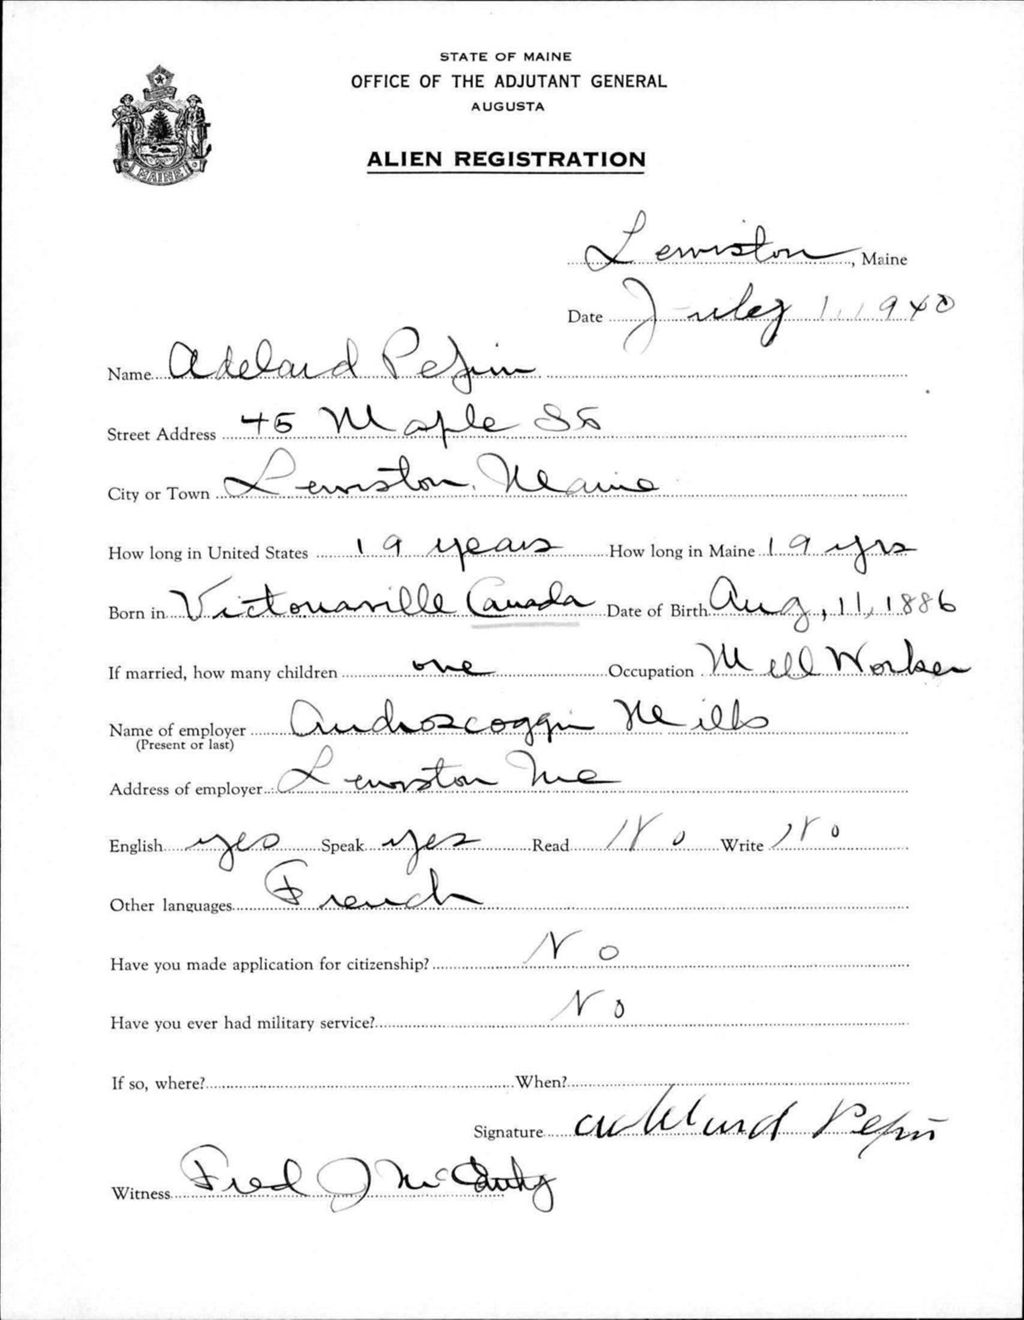 STATE OF MAINE
OFFICE OF THE ADJUTANT GENERAL
AUGUSTA
ALIEN REGISTRATION
MAINE
Lewiston, Maine
Date July 1, 1940
Name Adelard Pepin
Street Address 45 Maple St
City or Town Lewiston, Maine
How long in United States 19 years How long in Maine 19 yrs
Born in Victoriaville Canada Date of Birth Aug, 11, 1886
If married, how many children one Occupation Mill Worker
Name of employer Androscoggin Mills
(Present or last)
Address of employer Lewiston Me
English yes Speak yes Read No Write No
Other languages French
Have you made application for citizenship? No
Have you ever had military service? No
If so, where? When?
Signature Adelard Pepin
Witness Fred J McCarthy